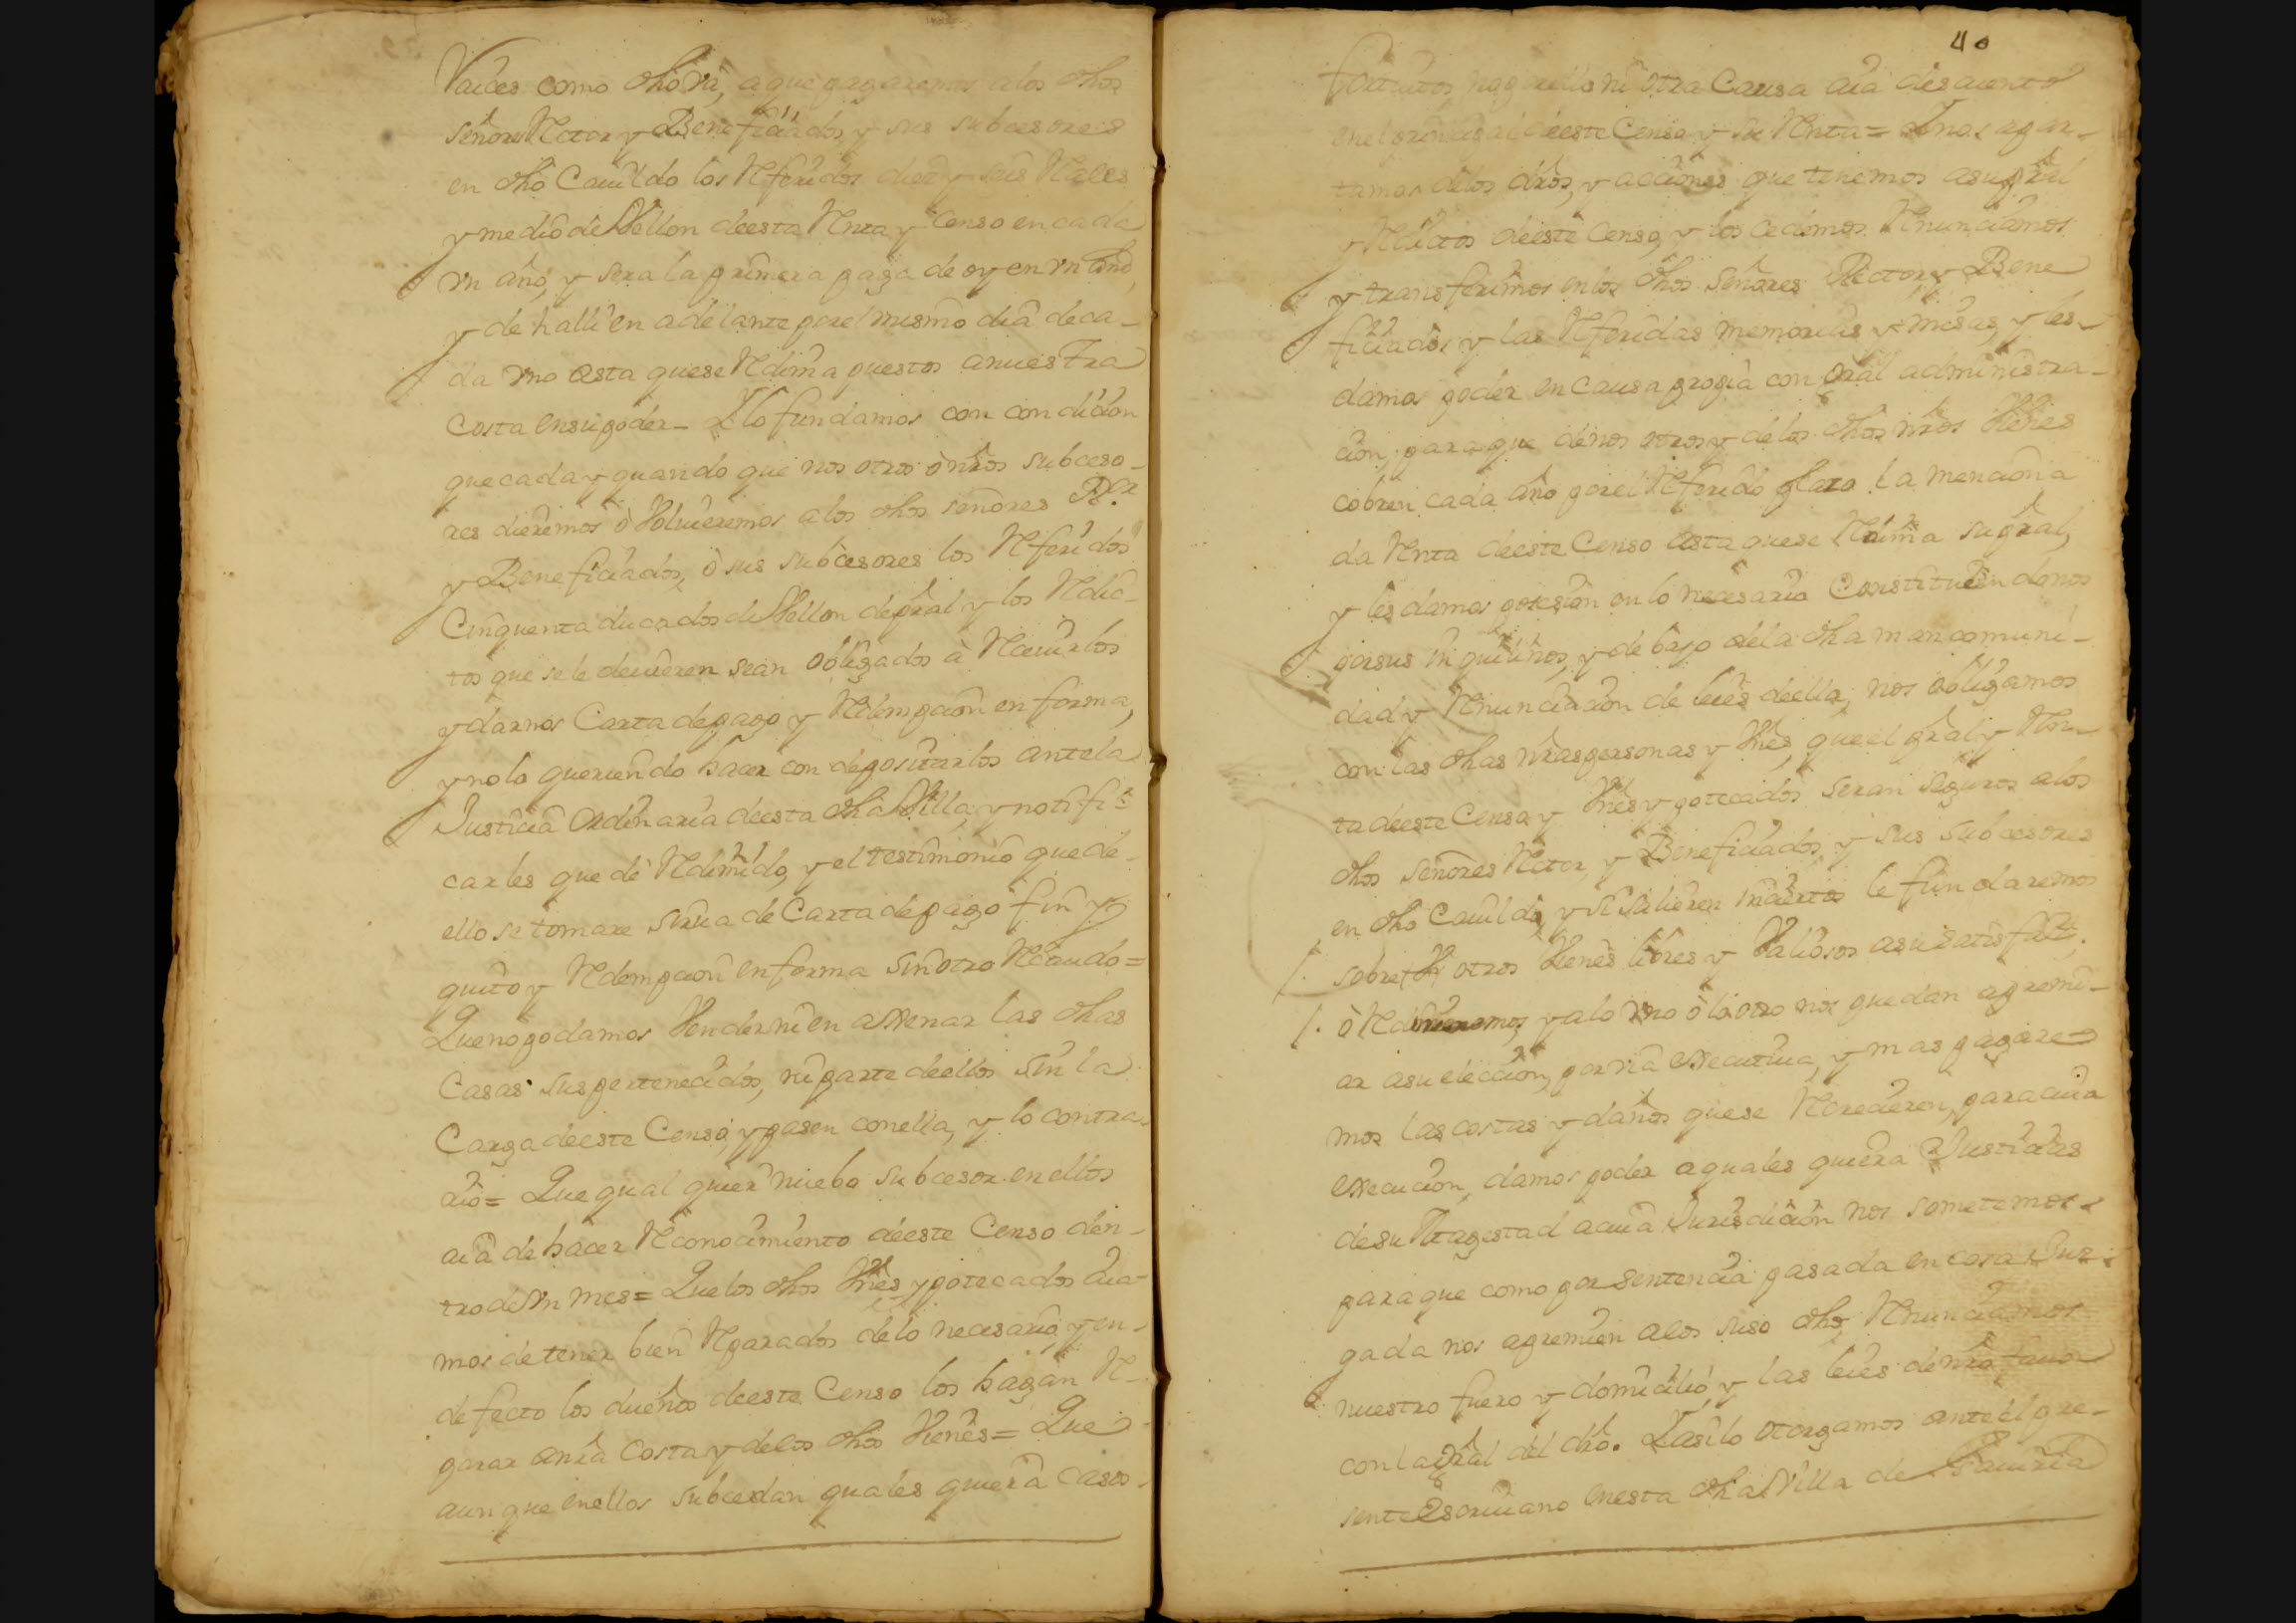 Raices como dho va, a que pagaremos a los dhos
señores Rector y Beneficiados, y sus subcesores
en dho Cavildo los Referidos diez y seis Reales
y medio de Vellon de esta Renta y Censo en cada
vn año, y sera la primera paga de oy en vn año,
y de halli en adelante por el mismo dia de ca-
da vno asta que se Redima puestos a nuestra
Costa en su poder - I lo fundamos con condicion
que cada y quando que nos otros ò nrõs subceso-
res dieremos ò Volvieremos a los dhos señores Rr.
y Beneficiados, ò sus subcesores los Referidos
Cinquenta ducados de Vellon de prãl y los Redi-
tos que se le devieren sean obligados à Recivirlos
y darnos Carta de pago y Redempcion en forma,
y no lo queriendo hacer con depositarlos ante la
Justicia Ordinaria de esta dha Villa y notifi-
carles quede Redimido, y el testimonio que de
ello se tomare sirva de Carta de pago fin y
quito y Redempcion en forma sin otro Recaudo =
Que no podamos Vender ni en axenar las dhas
Casas sus pertenecidos, ni parte de ellos sin la
Carga de este Censo, y pasen con ella, y lo contra-
rio = Que qual quier nuebo subcesor en ellos
aia de hacer Reconocimiento de este Censo den-
tro de Vn mes = Que los dhos Vnẽs ypotecados aia-
mos de tener bien Reparados de lo necesario, y en
defecto los dueños de este Censo los hagan Re-
parar a nrã Costa y de los dhos Vienes = Que
aunque en ellos subcedan quales quiera Casos
40
fortuitos, no por ello ni otra Causa aia descuento
en el principal de este Censo y su Renta = I nos apar-
tamos de los dros, y acciones que tenemos a su prãl
y Reditos de este Censo, y los cedemos Renunciamos
y transferimos en los dhos señores Rector y Bene
ficiados y las Referidas memorias y misas, y les
damos poder en Causa propia con gral administra-
cion, para que de nos otros y de los dhos nrõs
cobren cada año por el Referido plazo la menciona
da Renta de este Censo asta que se Redima su prãl,
y les damos posesion en lo necesario Constituiendonos
por sus inquilinos, y de bajo de la dha mancomuni-
dad y Renunciacion de leies de ella, nos obligamos
con las dhas nrãs personas y Vnẽs, que el prãl y Ren
ta de este Censo y Vnẽs ypotecados seran seguros a los
dhos señores Rector, y Beneficiados, y sus subcesores
en dho Cavildo, y si salieren inciertos le fundaremos
sobre otros Vienes libres y Valiosos a su satisfaz.
ò Redimiremos, y a lo vno ò lo otro nos puedan apremi-
ar a su eleccion, por via executiva, y mas pagare-
mos las costas y daños que se Recrecieren, para cuia
execucion, damos poder a quales quiera Justicias
de su Magestad a cuia Jurisdicion nos sometemos
para que como por sentencia pasada en cosa Juz-
gada nos apremien a los suso dho, Renunciamos
nuestro fuero y domicilio, y las leies de nrõ favor
con la gral del dro. I asi lo otorgamos ante el pre-
sente Escrivano en esta dha Villa de